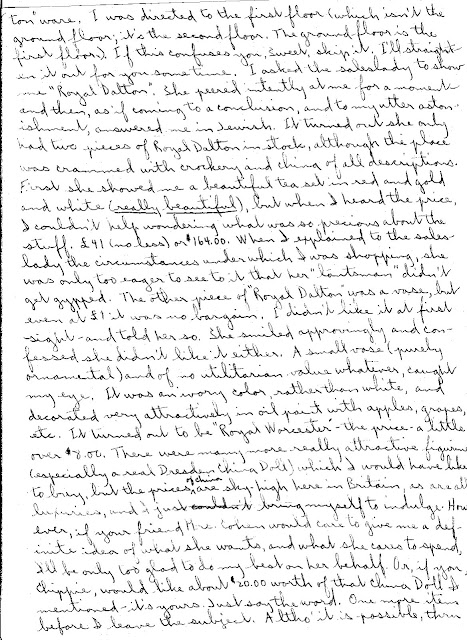 ton" ware. I was directed to the first floor (which isn't the
ground floor; it's the second floor. The ground floor is the
first floor). If this confuses you, Sweet, skip it, I'll straight-
en it out for you some time. I asked the saleslady to show
me "Royal Dalton". She peered intently at me for a moment
and then, as if coming to a conclusion, and to my utter aston-
ishment, answered me in Jewish. It turned out she only
had two pieces of Royal Dalton in stock, although the place
was crammed with crockery and china of all descriptions.
First she showed me a beautiful tea set in red and gold
and white (really beautiful), but when I heard the price,
I couldn't help wondering what was so precious about the
stuff. £41 (no less) or $164.00. When I explained to the sales-
lady the circumstances under which I was shopping, she
was only too eager to see to it that her "lantsman" didn't
get gypped. The other piece of "Royal Dalton" was a vase, but
even at £1 it was no bargain. I didn't like it at first
-sight-and told her so. She smiled approvingly and con-
fessed she didn't like it either. A small vase (purely
ornamental) and of no utilitarian value whatever, caught
my eye. It was an ivory color, rather than white, and
decorated very attractively in oil paint with apples, grapes,
etc. It turned out to be "Royal Worcester"-the price-a little
over $8.00. There were many more really attractive figurine
(especially a real Dresden China Doll) which I would have like
to buy, but the prices of china are sky-high here in Britain, as are all
luxuries, and I just couldn't bring myself to indulge. How
ever, if your friend Mrs. Cohen would care to give me a def-
inite idea of what she wants, and what she cares to spend,
I'll be only too glad to do my best on her behalf. Or, if you,
Chippie, would like about $20.00 worth of that China Doll I
mentioned-it's yours. Just say the word. One more item
before I leave the subject. Altho' it is possible, thru